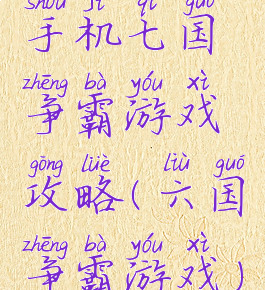 shǒu jī qī guó
手机七国
zhēng bà yóu xì
争霸游戏
gōng lüè liù guó
攻略(六国
zhēng bà yóu xì
争霸游戏)